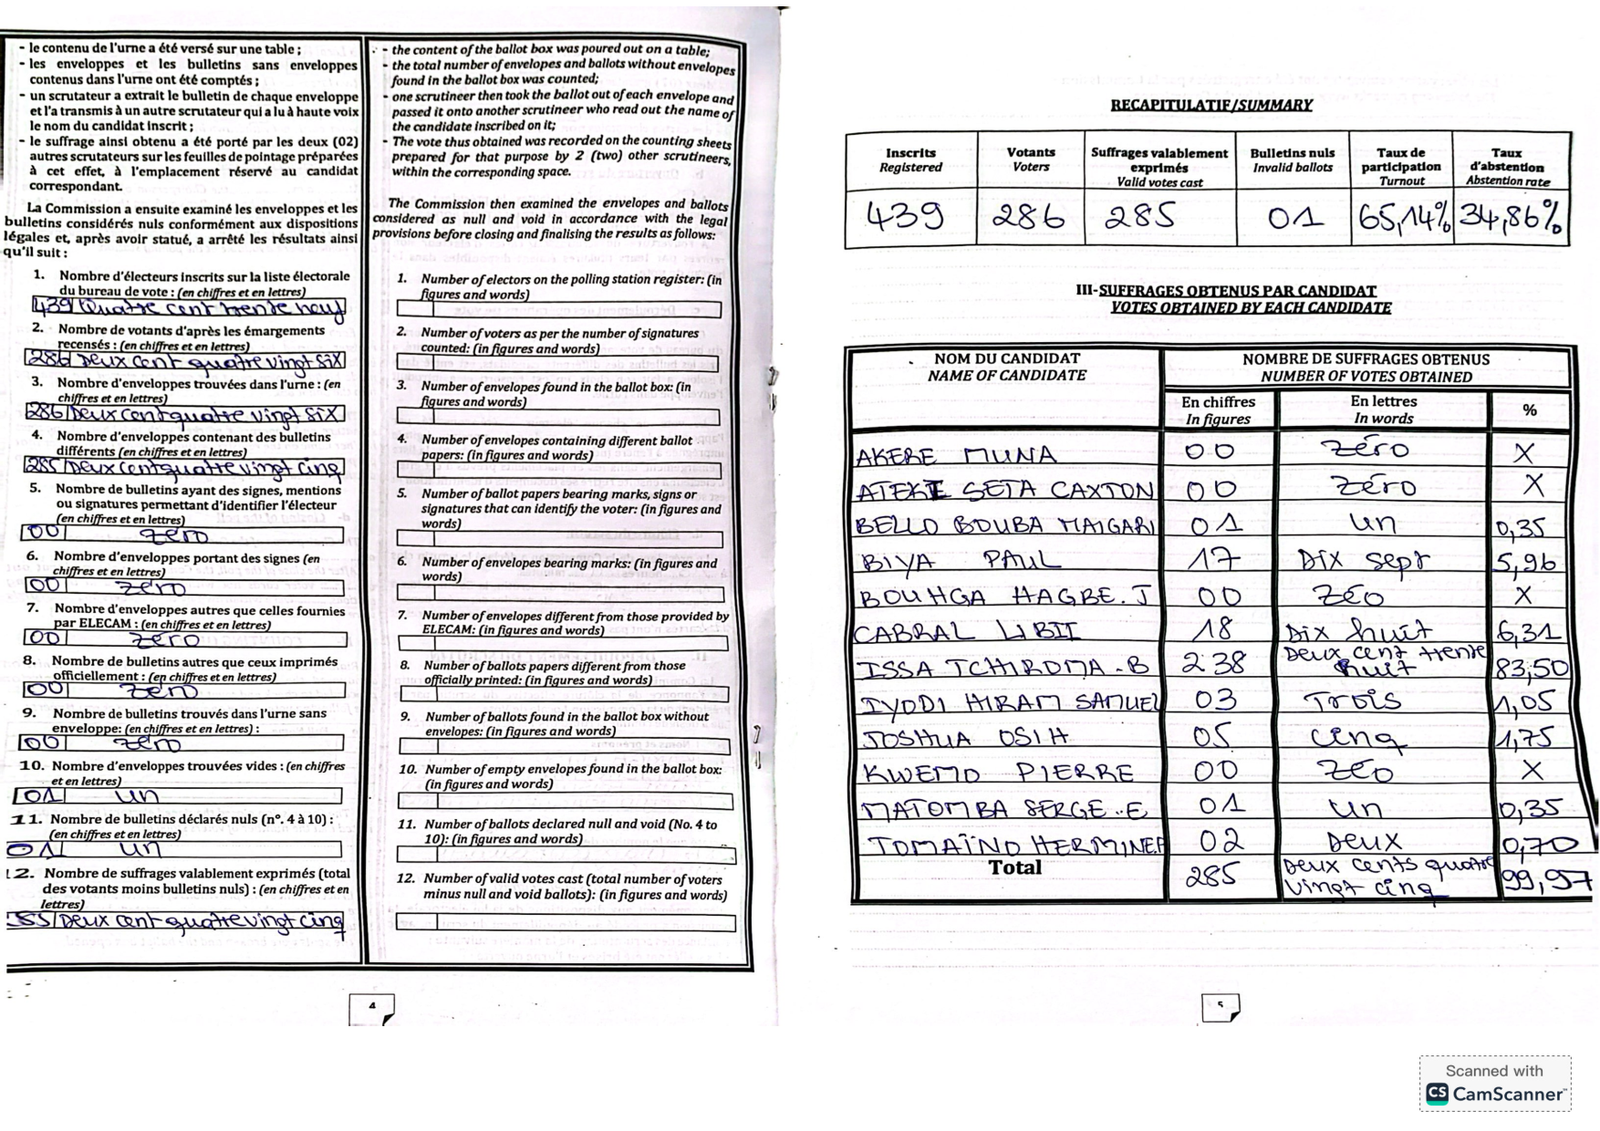 - le contenu de l'urne a été versé sur une table ;
- les enveloppes et les bulletins sans enveloppes
contenus dans l'urne ont été comptés ;
- un scrutateur a extrait le bulletin de chaque enveloppe
et l'a transmis à un autre scrutateur qui a lu à haute voix
le nom du candidat inscrit ;
- le suffrage ainsi obtenu a été porté par les deux (02)
autres scrutateurs sur les feuilles de pointage préparées
à cet effet, à l'emplacement réservé au candidat
correspondant.
La Commission a ensuite examiné les enveloppes et les
bulletins considérés nuls conformément aux dispositions
légales et, après avoir statué, a arrêté les résultats ainsi
qu'il suit :
1. Nombre d'électeurs inscrits sur la liste électorale
du bureau de vote : (en chiffres et en lettres)
439 Quatre cent trente neuf
2. Nombre de votants d'après les émargements
recensés : (en chiffres et en lettres)
286 Deux cent quatre vingt six
3. Nombre d'enveloppes trouvées dans l'urne : (en
chiffres et en lettres)
286 Deux cent quatre vingt six
4. Nombre d'enveloppes contenant des bulletins
différents (en chiffres et en lettres)
285 Deux cent quatre vingt cinq
5. Nombre de bulletins ayant des signes, mentions
ou signatures permettant d'identifier l'électeur
(en chiffres et en lettres)
00 zéro
6. Nombre d'enveloppes portant des signes (en
chiffres et en lettres)
00 zéro
7. Nombre d'enveloppes autres que celles fournies
par ELECAM : (en chiffres et en lettres)
00 zéro
8. Nombre de bulletins autres que ceux imprimés
officiellement : (en chiffres et en lettres)
00 zéro
9. Nombre de bulletins trouvés dans l'urne sans
enveloppe: (en chiffres et en lettres) :
00 zéro
10. Nombre d'enveloppes trouvées vides : (en chiffres
et en lettres)
01 un
11. Nombre de bulletins déclarés nuls (n°. 4 à 10) :
(en chiffres et en lettres)
01 un
12. Nombre de suffrages valablement exprimés (total
des votants moins bulletins nuls) : (en chiffres et en
lettres)
Deux cent quatre vingt cinq
- the content of the ballot box was poured out on a table;
- the total number of envelopes and ballots without envelopes
found in the ballot box was counted;
- one scrutineer then took the ballot out of each envelope and
passed it onto another scrutineer who read out the name of
the candidate inscribed on it;
- The vote thus obtained was recorded on the counting sheets
prepared for that purpose by 2 (two) other scrutineers,
within the corresponding space.
The Commission then examined the envelopes and ballots
considered as null and void in accordance with the legal
provisions before closing and finalising the results as follows:
1. Number of electors on the polling station register: (in
figures and words)
2. Number of voters as per the number of signatures
counted: (in figures and words)
3. Number of envelopes found in the ballot box: (in
figures and words)
4. Number of envelopes containing different ballot
papers: (in figures and words)
5. Number of ballot papers bearing marks, signs or
signatures that can identify the voter: (in figures and
words)
6. Number of envelopes bearing marks: (in figures and
words)
7. Number of envelopes different from those provided by
ELECAM: (in figures and words)
8. Number of ballots papers different from those
officially printed: (in figures and words)
9. Number of ballots found in the ballot box without
envelopes: (in figures and words)
10. Number of empty envelopes found in the ballot box:
(in figures and words)
11. Number of ballots declared null and void (No. 4 to
10): (in figures and words)
12. Number of valid votes cast (total number of voters
minus null and void ballots): (in figures and words)
4
RECAPITULATIF/SUMMARY
Inscrits Votants Suffrages valablement Bulletins nuls Taux de Taux
Registered Voters exprimés Invalid ballots participation d'abstention
Valid votes cast Turnout Abstention rate
439 286 285 01 65,14% 34,86%
III-SUFFRAGES OBTENUS PAR CANDIDAT
VOTES OBTAINED BY EACH CANDIDATE
NOM DU CANDIDAT NOMBRE DE SUFFRAGES OBTENUS
NAME OF CANDIDATE NUMBER OF VOTES OBTAINED
En chiffres En lettres %
In figures In words
AKERE MUNA 00 zéro X
ATEKI SETA CAXTON 00 zéro X
BELLO BOUBA MAIGARI 01 un 0,35
BIYA PAUL 17 Dix sept 5,96
BOUHGA HAGBE. J 00 Zéo X
CABRAL LIBII 18 Dix huit 6,31
ISSA TCHIROMA. B 238 Deux cent trente huit 83,50
IYODI HIRAM SAMUEL 03 Trois 1,05
JOSHUA OSIH 05 cinq 1,75
KWEMO PIERRE 00 Zéo X
MATOMBA SERGE. E 01 un 0,35
TOMAÏNO HERMINE.P 02 Deux 0,70
Total 285 Deux cents quatre vingt cinq 99,97
5
Scanned with
CS CamScanner